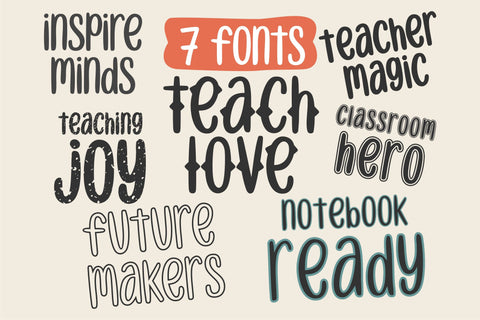 inspire
minds
7 fonts
teacher
magic
teach
love
teaching
joy
classroom
hero
future
makers
notebook
ready